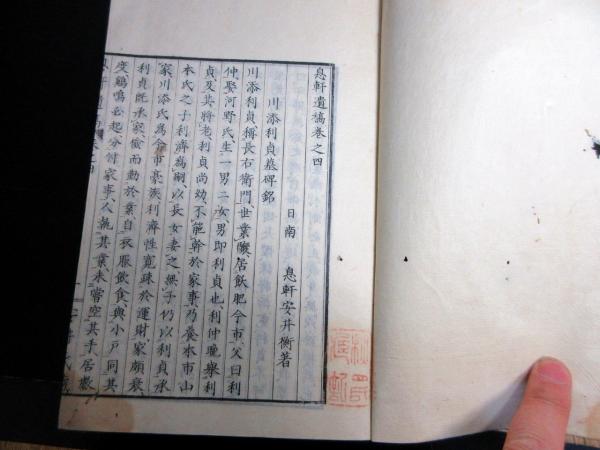 息軒遺稿卷之四
日南 息軒安井衡著
川添利貞墓碑銘
川添利貞、稱長右衛門、世業釀、居飫肥今市、父曰利
仲、娶河野氏、生一男二女、男即利貞也、利仲曁擧利
貞、及其將老、利貞尚幼、不能幹於家事、乃養本市山
本氏之子利濟爲嗣、以長女妻之、無子、仍以利貞承
家、川添氏爲今市豪族、利濟性寬、疎於運財、家頗衰、
利貞既承家、儉而勤於業、自衣服飲食、與小戶同其
度、鷄鳴必起、分付家事、人執其業、未嘗空其手、居數